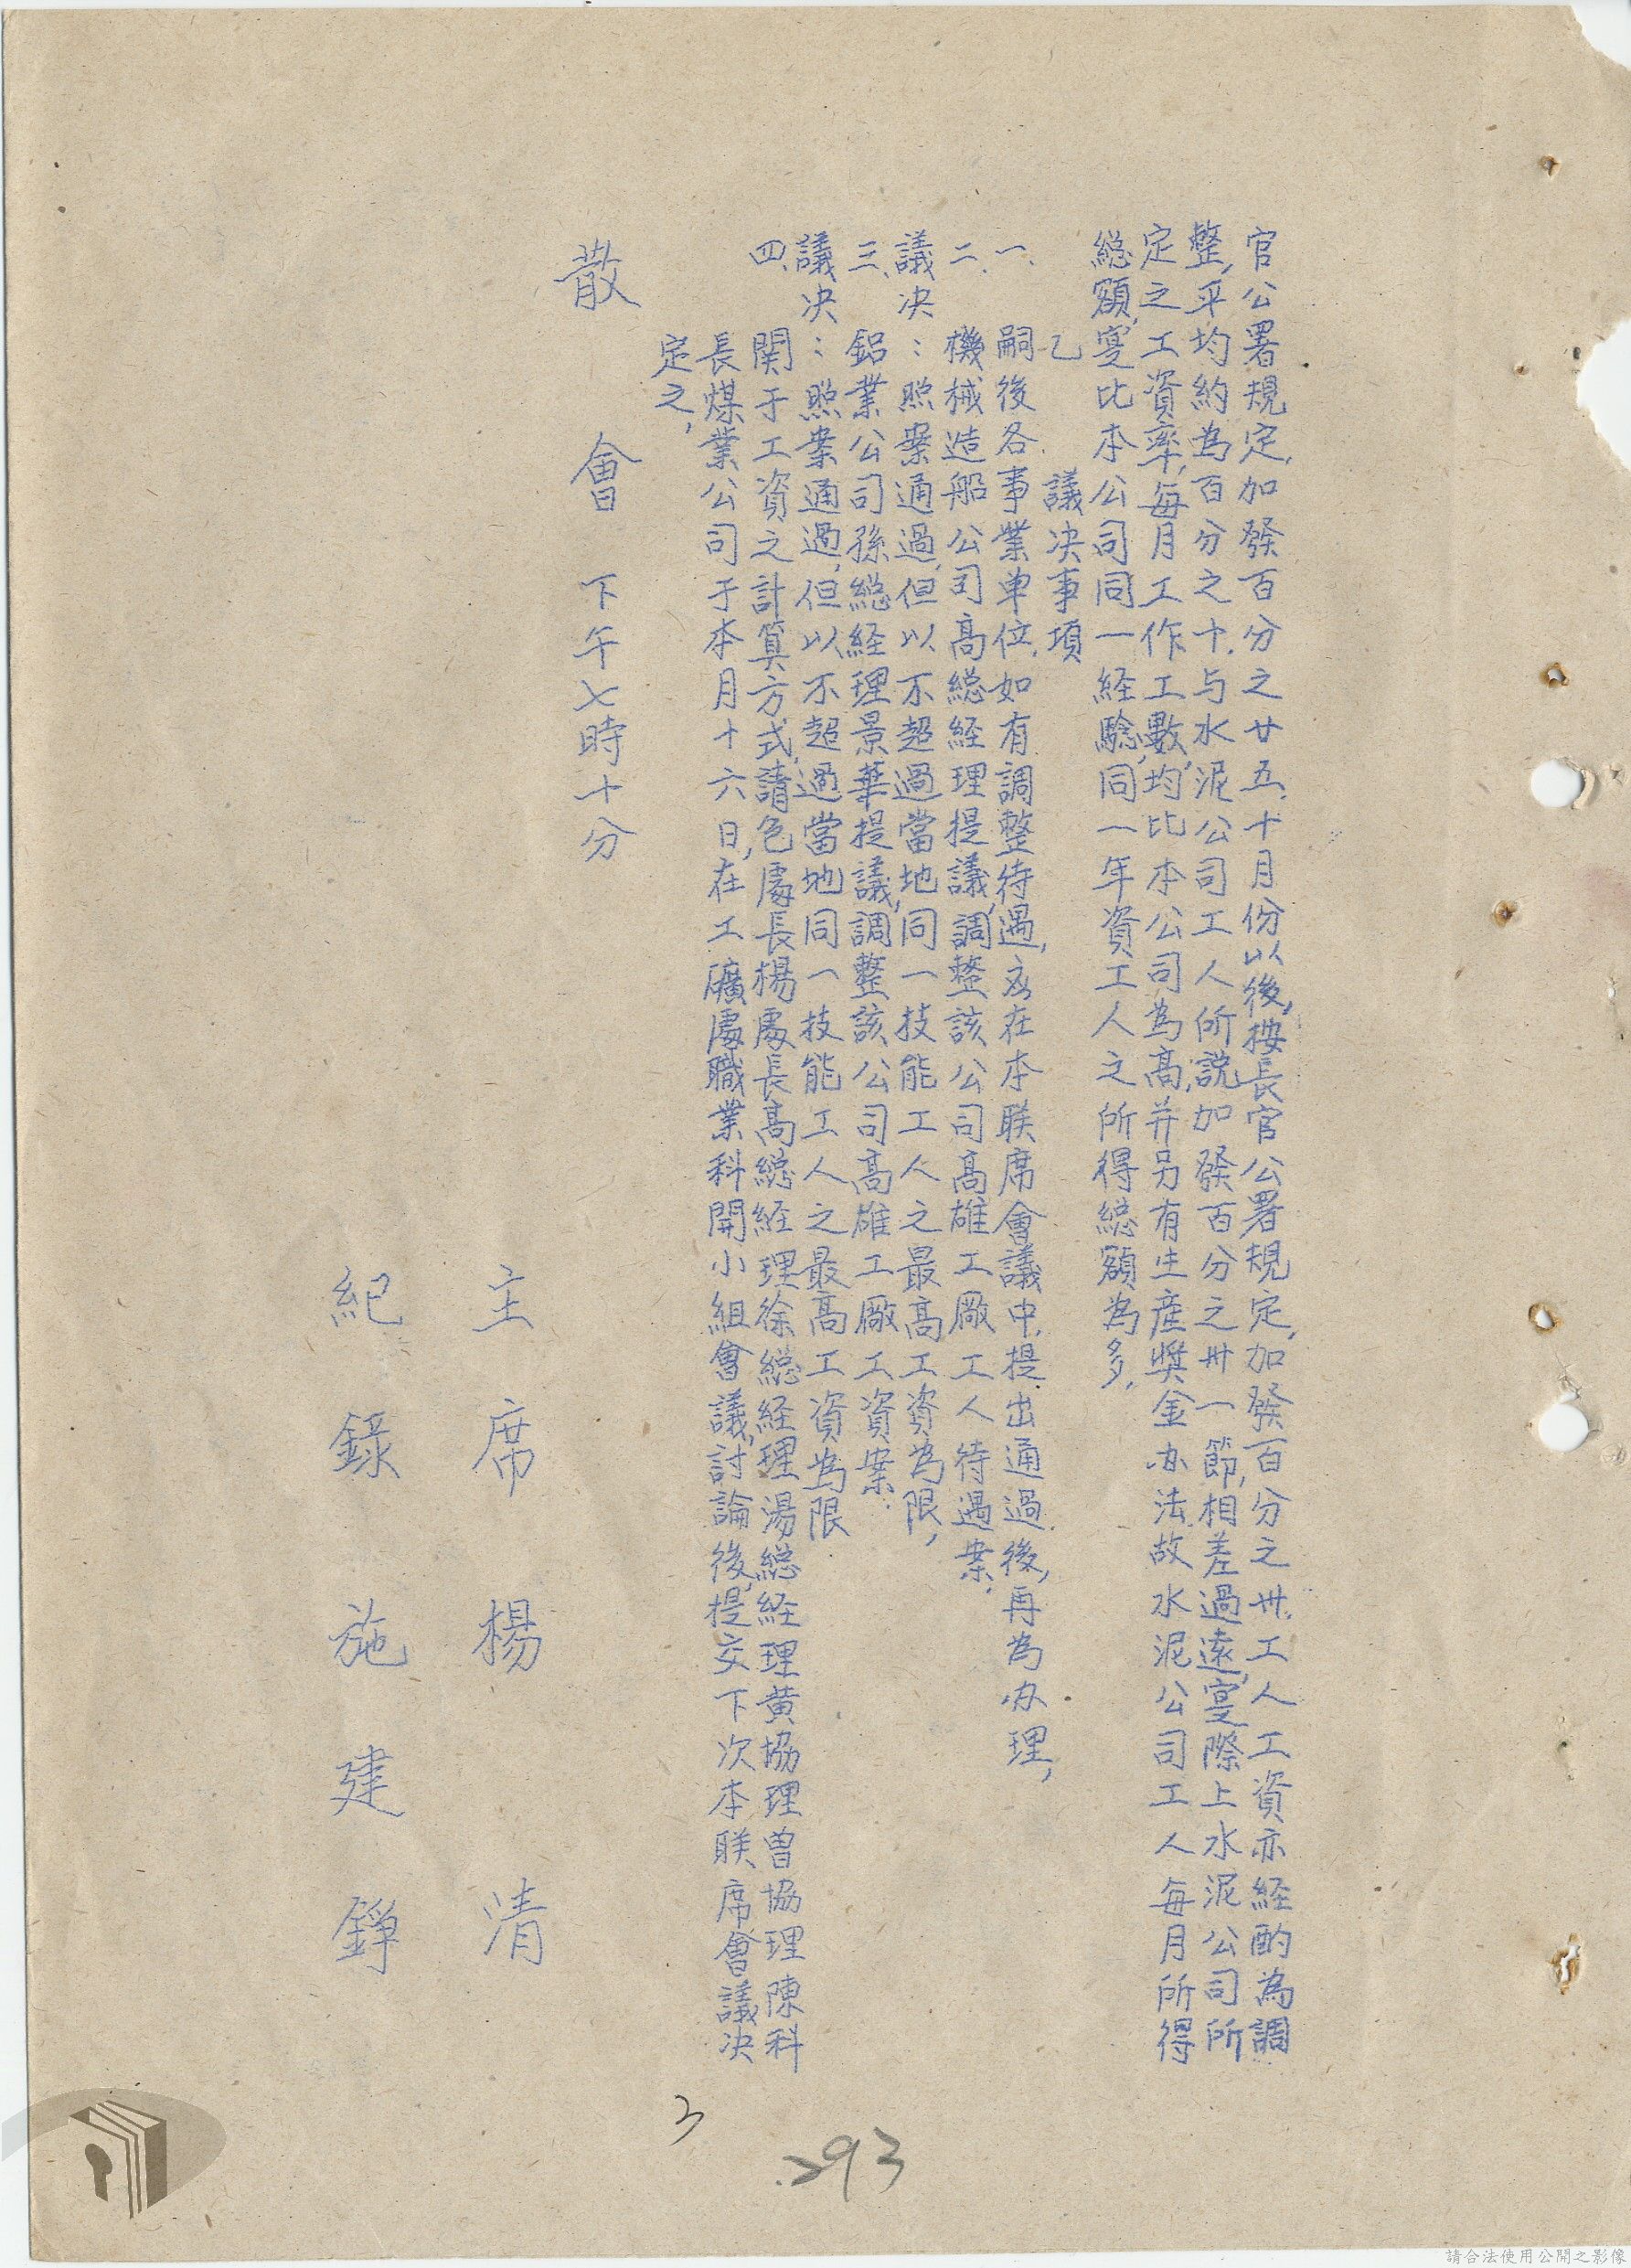 官公署規定,加發百分之廿五.十月份以後,按長官公署規定,加發百分之卅.工人工資亦経酌為調
整,平均約為百分之十.与水泥公司工人所説加發百分之卅一節,相差過遠,寔際上水泥公司所
定之工資率,每月工作工數,均比本公司為高,并另有生産獎金办法.故水泥公司工人每月所得
総額,寔比本公司同一経驗,同一年資工人之所得総額為多.
乙 議決事項
一、嗣後各事業单位.如有調整待遇,应在本联席會議中.提出通過後,再為办理,
二、機械造船公司高総経理提議,調整該公司高雄工廠工人待遇案.
議決:照案通過,但以不超過當地同一技能工人之最高工資為限,
三、鋁業公司孫総経理景華提議,調整該公司高雄工廠工資案.
議決:照案通過,但以不超過當地同一技能工人之最高工資為限
四、関于工資之計算方式,請包處長楊處長高総経理徐総経理湯総経理黄協理曽協理陳科
長煤業公司于本月十六日,在工礦處職業科開小組會議,討論後,提交下次本联席會議決
定之,
散會 下午七時十分
主席楊清
紀錄施建錚
3
293
請合法使用公開之影像